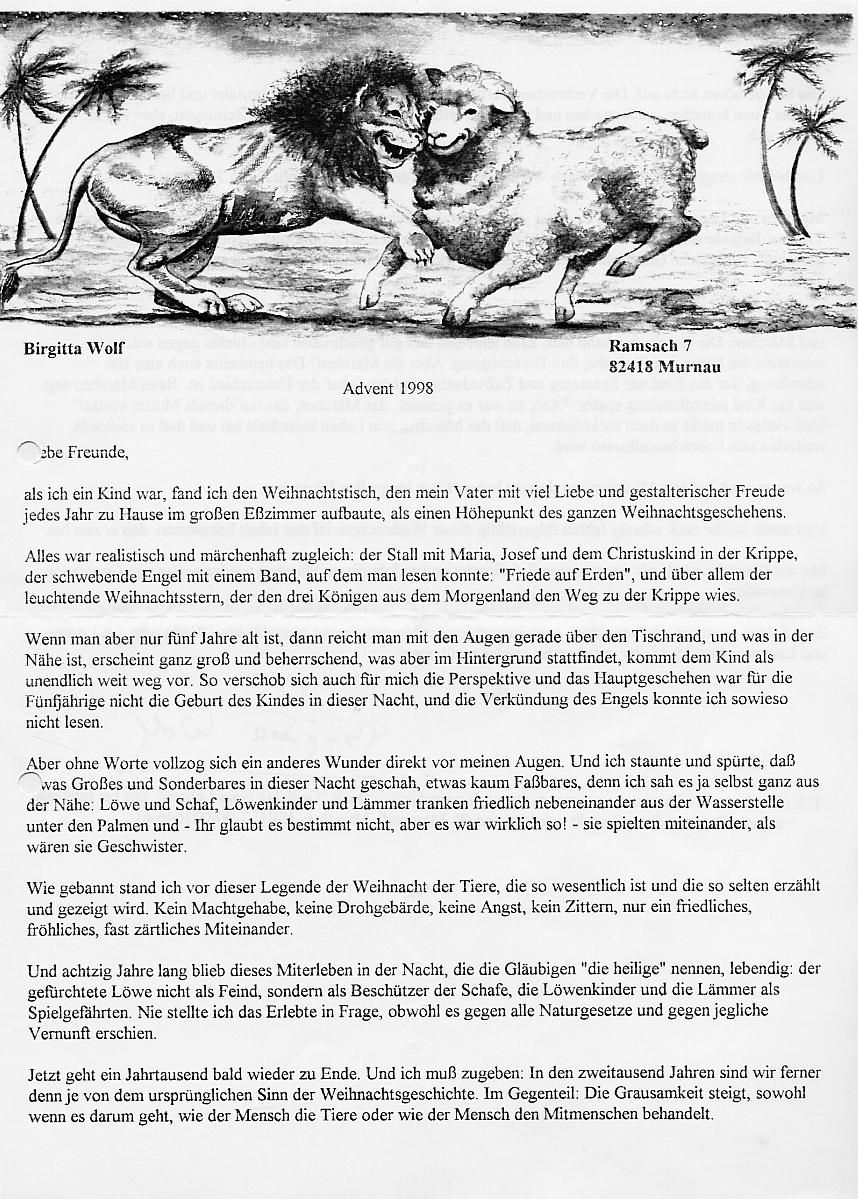 Birgitta Wolf
Ramsach 7
82418 Murnau
Advent 1998
ebe Freunde,
als ich ein Kind war, fand ich den Weihnachtstisch, den mein Vater mit viel Liebe und gestalterischer Freude
jedes Jahr zu Hause im großen Eßzimmer aufbaute, als einen Höhepunkt des ganzen Weihnachtsgeschehens.
Alles war realistisch und märchenhaft zugleich: der Stall mit Maria, Josef und dem Christuskind in der Krippe,
der schwebende Engel mit einem Band, auf dem man lesen konnte: "Friede auf Erden", und über allem der
leuchtende Weihnachtsstern, der den drei Königen aus dem Morgenland den Weg zu der Krippe wies.
Wenn man aber nur fünf Jahre alt ist, dann reicht man mit den Augen gerade über den Tischrand, und was in der
Nähe ist, erscheint ganz groß und beherrschend, was aber im Hintergrund stattfindet, kommt dem Kind als
unendlich weit weg vor. So verschob sich auch für mich die Perspektive und das Hauptgeschehen war für die
Fünfjährige nicht die Geburt des Kindes in dieser Nacht, und die Verkündung des Engels konnte ich sowieso
nicht lesen.
Aber ohne Worte vollzog sich ein anderes Wunder direkt vor meinen Augen. Und ich staunte und spürte, daß
was Großes und Sonderbares in dieser Nacht geschah, etwas kaum Faßbares, denn ich sah es ja selbst ganz aus
der Nähe: Löwe und Schaf, Löwenkinder und Lämmer tranken friedlich nebeneinander aus der Wasserstelle
unter den Palmen und - Ihr glaubt es bestimmt nicht, aber es war wirklich so! - sie spielten miteinander, als
wären sie Geschwister.
Wie gebannt stand ich vor dieser Legende der Weihnacht der Tiere, die so wesentlich ist und die so selten erzählt
und gezeigt wird. Kein Machtgehabe, keine Drohgebärde, keine Angst, kein Zittern, nur ein friedliches,
fröhliches, fast zärtliches Miteinander.
Und achtzig Jahre lang blieb dieses Miterleben in der Nacht, die die Gläubigen "die heilige" nennen, lebendig: der
gefürchtete Löwe nicht als Feind, sondern als Beschützer der Schafe, die Löwenkinder und die Lämmer als
Spielgefährten. Nie stellte ich das Erlebte in Frage, obwohl es gegen alle Naturgesetze und gegen jegliche
Vernunft erschien.
Jetzt geht ein Jahrtausend bald wieder zu Ende. Und ich muß zugeben: In den zweitausend Jahren sind wir ferner
denn je von dem ursprünglichen Sinn der Weihnachtsgeschichte. Im Gegenteil: Die Grausamkeit steigt, sowohl
wenn es darum geht, wie der Mensch die Tiere oder wie der Mensch den Mitmenschen behandelt.